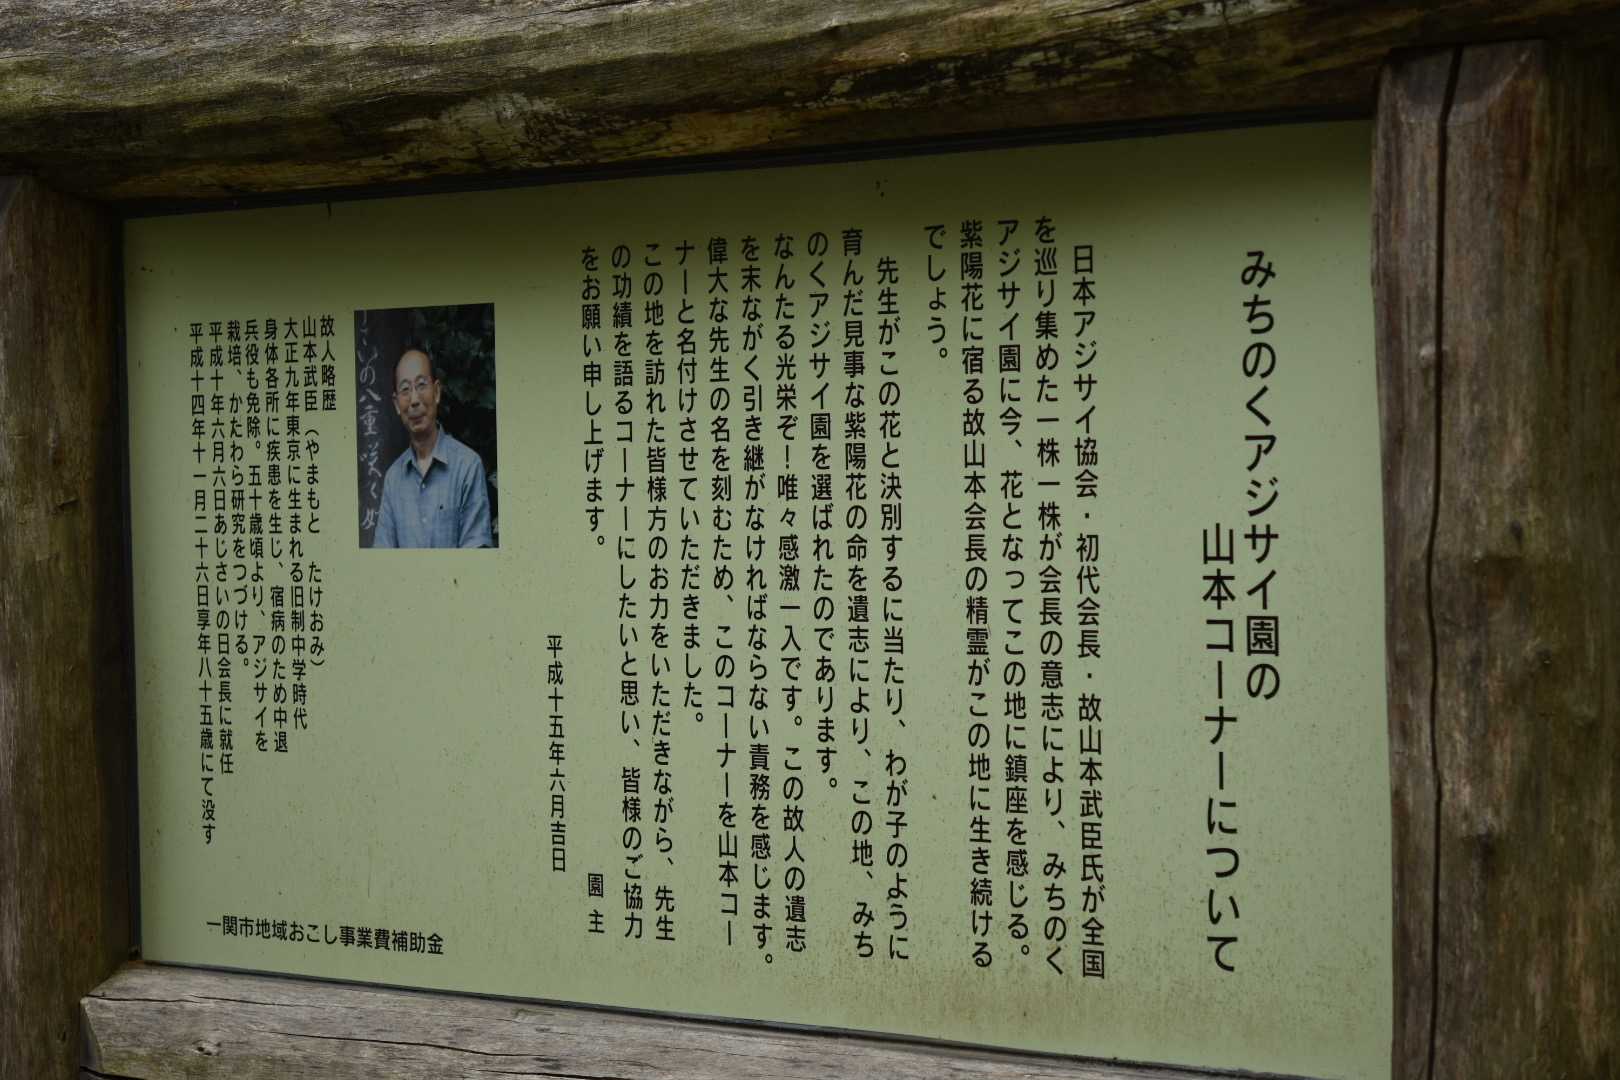 みちのくアジサイ園の
山本コーナーについて
日本アジサイ協会・初代会長・故山本武臣氏が全国
を巡り集めた一株一株が会長の意志により、みちのく
アジサイ園に今、花となってこの地に鎮座を感じる。
紫陽花に宿る故山本会長の精霊がこの地に生き続ける
でしょう。
先生がこの花と決別するに当たり、わが子のように
育んだ見事な紫陽花の命を遺志により、この地、みち
のくアジサイ園を選ばれたのであります。
なんたる光栄ぞ！唯々感激一入です。この故人の遺志
を末ながく引き継がなければならない責務を感じます。
偉大な先生の名を刻むため、このコーナーを山本コー
ナーと名付けさせていただきました。
この地を訪れた皆様方のお力をいただきながら、先生
の功績を語るコーナーにしたいと思い、皆様のご協力
をお願い申し上げます。
園主
平成十五年六月吉日
の八重咲く
故人略歴
山本武臣（やまもと　たけおみ）
大正九年東京に生まれる旧制中学時代
身体各所に疾患を生じ、宿病のため中退
兵役も免除。五十歳頃より、アジサイを
栽培、かたわら研究をつづける。
平成十年六月六日あじさいの日会長に就任
平成十四年十一月二十六日享年八十五歳にて没す
一関市地域おこし事業費補助金